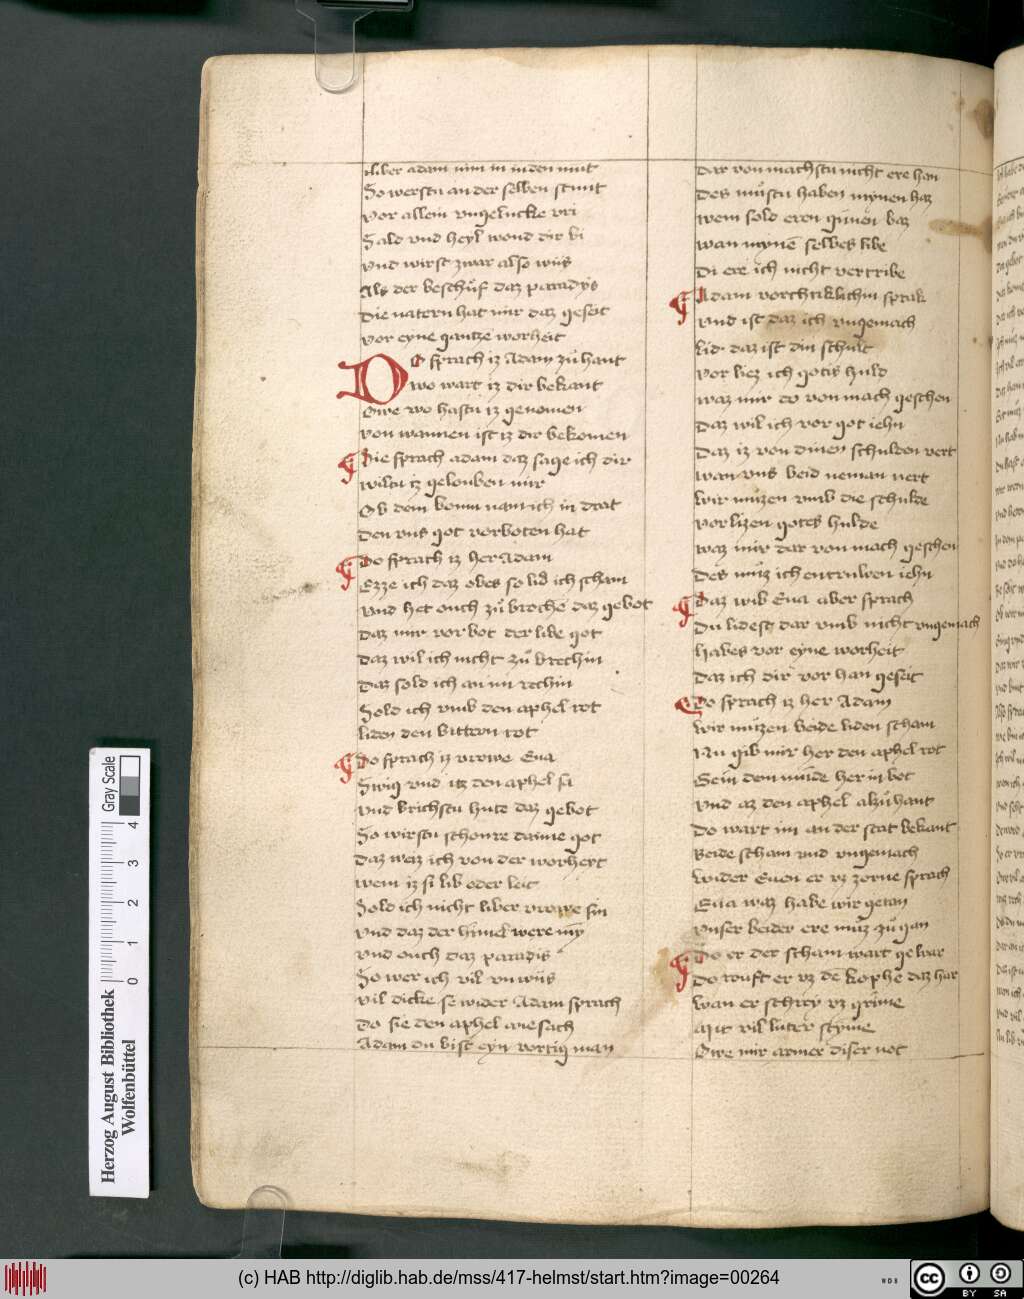 liber adam nim in in den mut
So werstu an der selben stunt
vor allem vngelucke vri
Sald vnd heyl wond dir bi
vnd wirst zwar also wiis
Als der beschuf daz paradys
Die natern hat mir daz geseit
vor eyne gantze worheit
Do sprach iz Adam zu hant
wo wart iz dir bekant
Owe wo hastu iz genomen
von wannen ist iz dir bekomen
Sie sprach adam daz sage ich dir
wiltu iz gelouben mir
Ob dem boum nam ich in drat
den vns got vorboten hat
Do sprach iz her Adam
Ezze ich daz obes so lid ich scham
vnd het ouch zu broche daz gebot
daz mir vor bot der libe got
daz wil ich nicht zu brechin
daz sold ich an mi rechin
Sold ich vmb den aphel rot
liden den bittern tot
Do sprach iz vrowe Eua
Swig vnd itz den aphel sa
vnd brichstu hute daz gebot
So wirstu schonre danne got
daz weiz ich von der worheyt
wem iz si lib oder leit
Sold ich nicht liber vrowe sin
vnd daz der himel were myn
vnd ouch daz paradis
So wer ich vil vn wiis
vil dicke se wider Adam sprach
do sie den aphel ane sach
Adam du bist eyn vortig man
Dar von machstu nicht ere han
Des mustu haben mynen haz
wem sold eren gunen baz
wan myne selbes libe
Di ere ich nicht vertribe
Adam vorchtiklichin sprak
vnd ist daz ich vngemach
Lid daz ist din schult
vor liez ich gotis huld
waz mir do von mach geschen
daz wil ich vor got iehn
Daz iz von dinen schulden vert
wan vns beid neman nert
wir muzen vmb die schulde
vorlizen gotes hulde
waz mir dar von mach geschen
des muz ich entruwen iehn
Daz wib Eua aber sprach
Du lidest dar vmb nicht vngemach
habes vor eyne worheit
daz ich dir vor han geseit
Do sprach iz her Adam
wir muzen beide liden scham
Nu gib mir her den aphel rot
Sein dem munde her in bot
vnd az den aphel alzuhant
Do wart im an der stat bekant
Beide scham vnd vngemach
wider Euen er vz zorne sprach
Eua waz habe wir getan
vnser beider ere muz zu gan
Do er der scham wart gewar
Do rouft er vz de kophe daz har
wan er schrey vz grime
Mit vil luter styme
Owe mir armer diser not
Herzog August Bibliothek
Wolfenbüttel
0 1 2 3 4
Gray Scale
(c) HAB http://diglib.hab.de/mss/417-helmst/start.htm?image=00264
WDB
cc BY SA